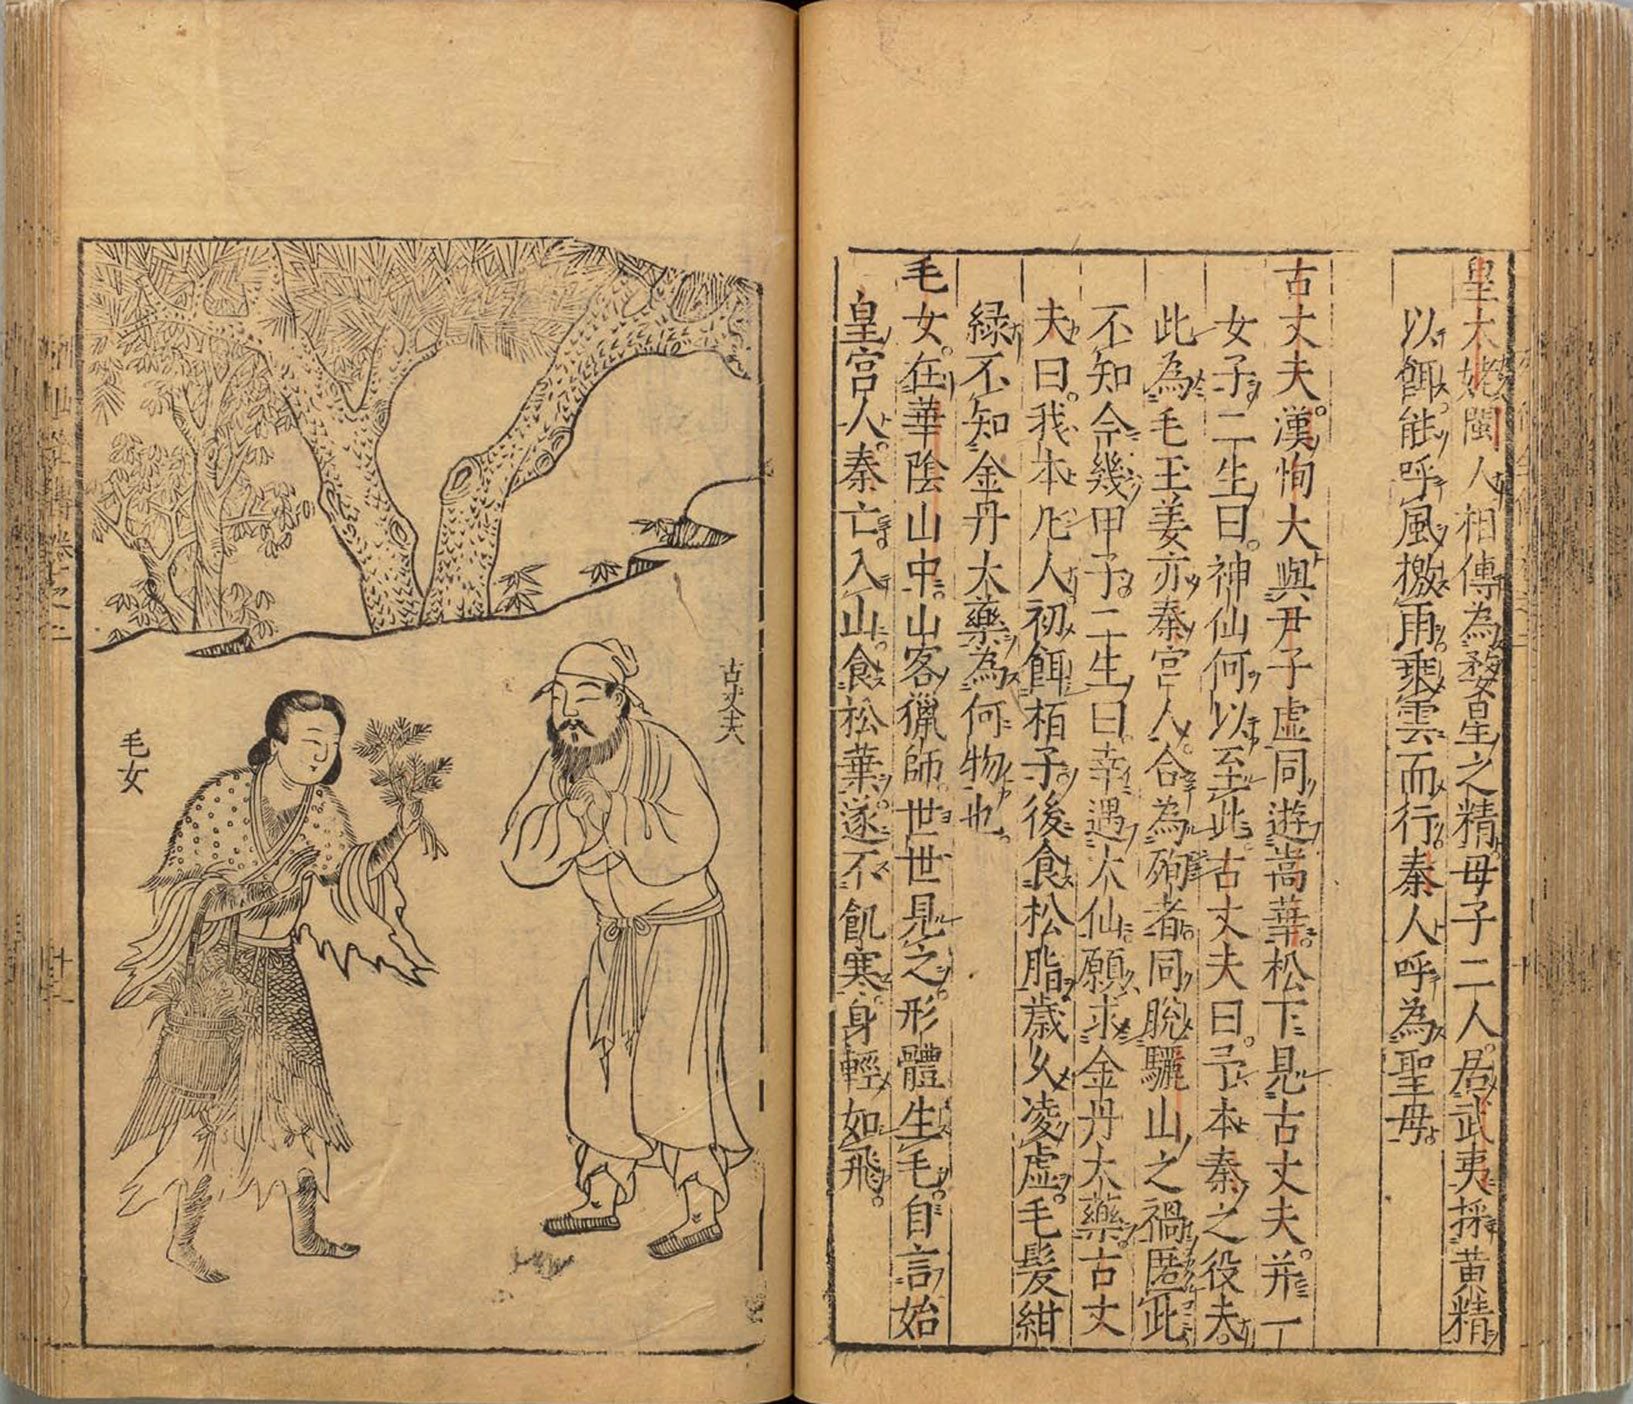 皇太姥閩人相傳為婺星之精。母子二人。居武夷採黃精
以餌。能呼風檄雨。乘雲而行。秦人呼為聖母
古丈夫。漢恂大與尹子虛同遊嵩華。松下見古丈夫。并一
女子。二生曰。神仙何以至此。古丈夫曰。予本秦之役夫。
此為毛玉姜亦秦宮人。合為殉者。同脫驪山之禍匿此
不知今幾甲子。二生曰。幸遇大仙。願求金丹大藥。古丈
夫曰。我本凡人。初餌栢子。後食松脂歲久凌虛。毛髮紺
緑不知金丹大藥為何物也。
毛女。在華陰山中。山客獵師。世世見之。形體生毛。自言始
皇宮人。秦亡。入山。食松葉。遂不飢寒。身輕如飛。
古丈夫
毛女